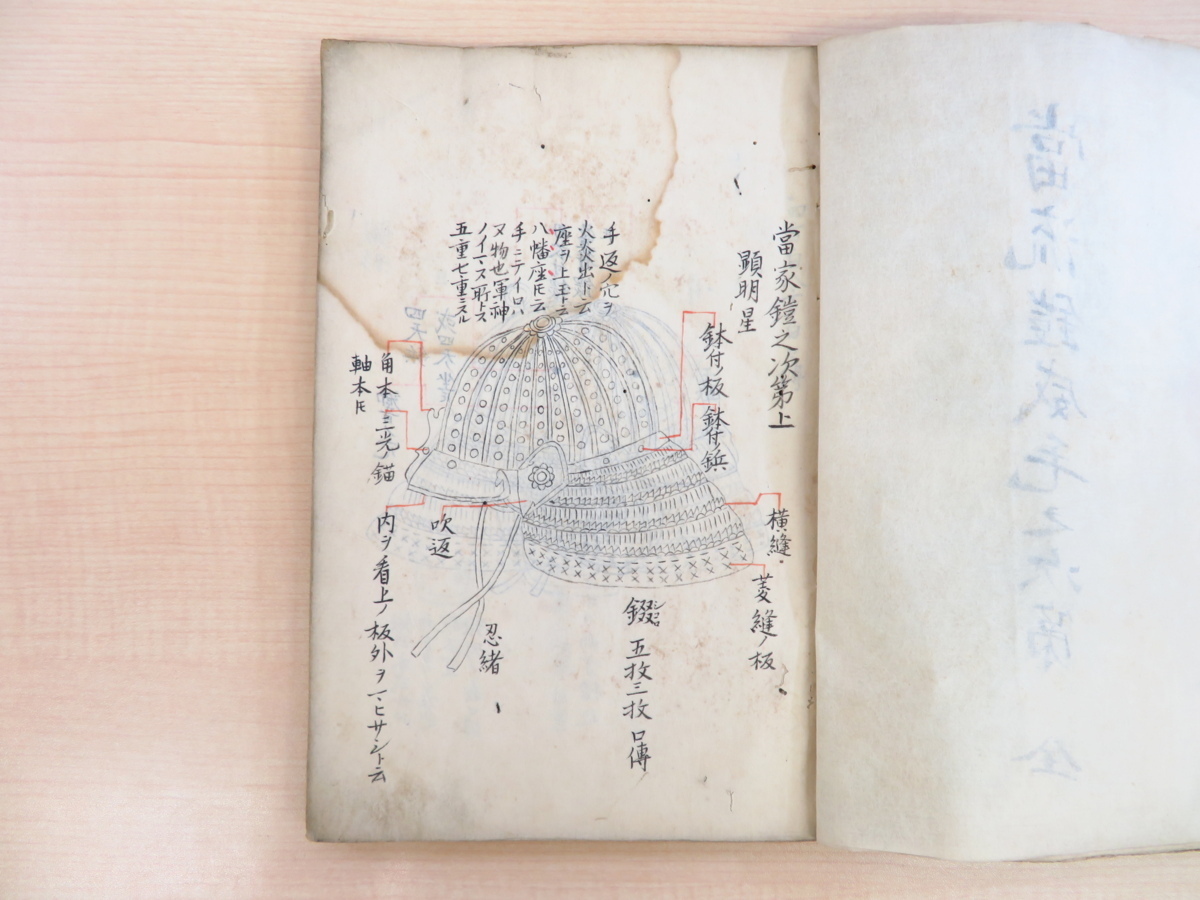 當流鎧威毛之次第 全
當家鎧之次第上
顕明星
手返ノ穴ヲ
火炎出ト云
座ヲ上玉ト云
八幡座トモ云
手ニテイロハ
ヌ物也軍神
ノイマス所トス
五重七重ニスル
鉢付ノ板
鉢付ノ鋲
横縫
菱縫ノ板
錣 シコロ 五枚三枚 口傳
忍緒
吹返
角本
軸本トモ
三光ノ錨
内ヲ看上ノ板外ヲマヒサシト云